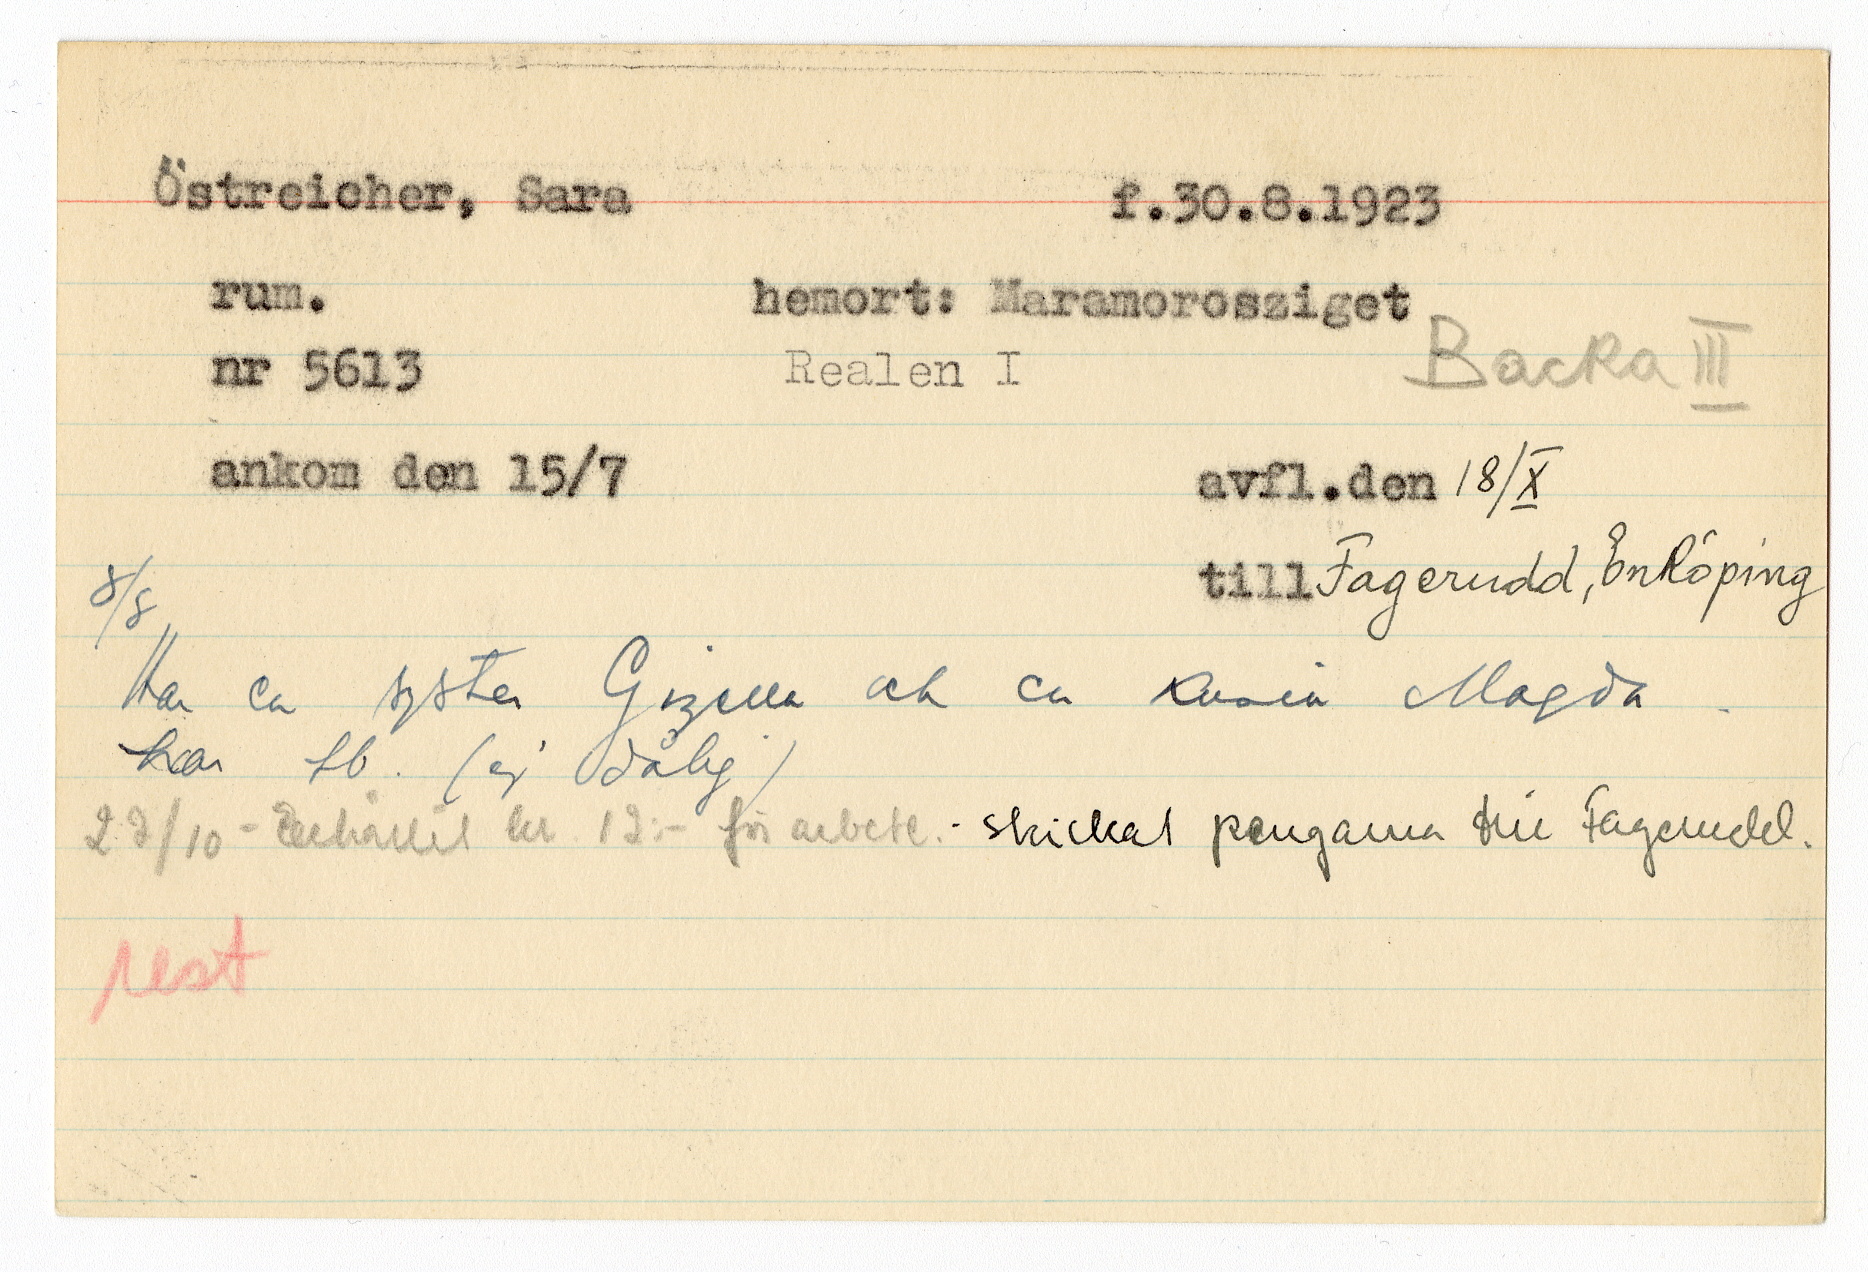 Östreicher, Sara f.30.8.1923
rum. hemort: Maramorosziget
nr 5613 Realen I Backa III
ankom den 15/7 avfl.den 18/X
till Fagerudd, Enköping
8/8
Har en syster Gizella och en kusin Magda.
har tb. (ej dålig)
27/10 - Erhållit kr. 12:- för arbete. - skickat pengarna till Fagerudd.
rest